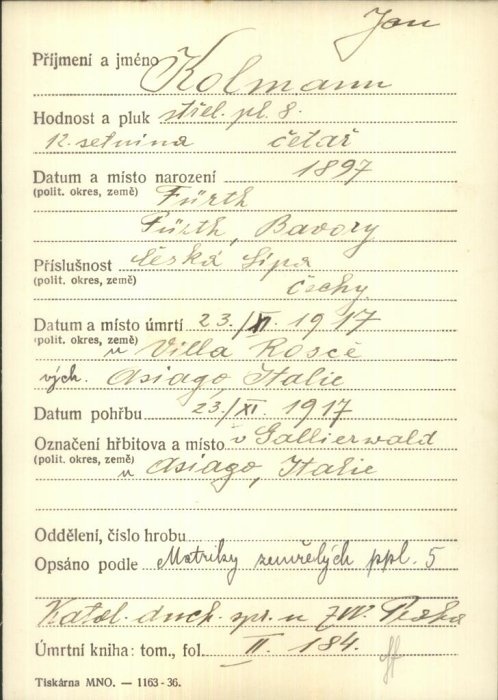 Jan
Příjmení a jméno Kolmann
Hodnost a pluk střel. pl. 8.
12. setnina četař
Datum a místo narození 1897
(polit. okres, země) Fürth
Fürth, Bavory
Příslušnost Česká Lípa
(polit. okres, země) Čechy
Datum a místo úmrtí 23./XI. 1917
(polit. okres, země) u Villa Rosce
vých. Asiago, Italie
Datum pohřbu 23./XI. 1917
Označení hřbitova a místo v Gallierwald
(polit. okres, země) u Asiago, Italie
Oddělení, číslo hrobu
Opsáno podle Matriky zemřelých ppl. 5
Katol. duch. spr. u ZVV. Praha
Úmrtní kniha: tom., fol. II. 184.
Tiskárna MNO. — 1163-36.